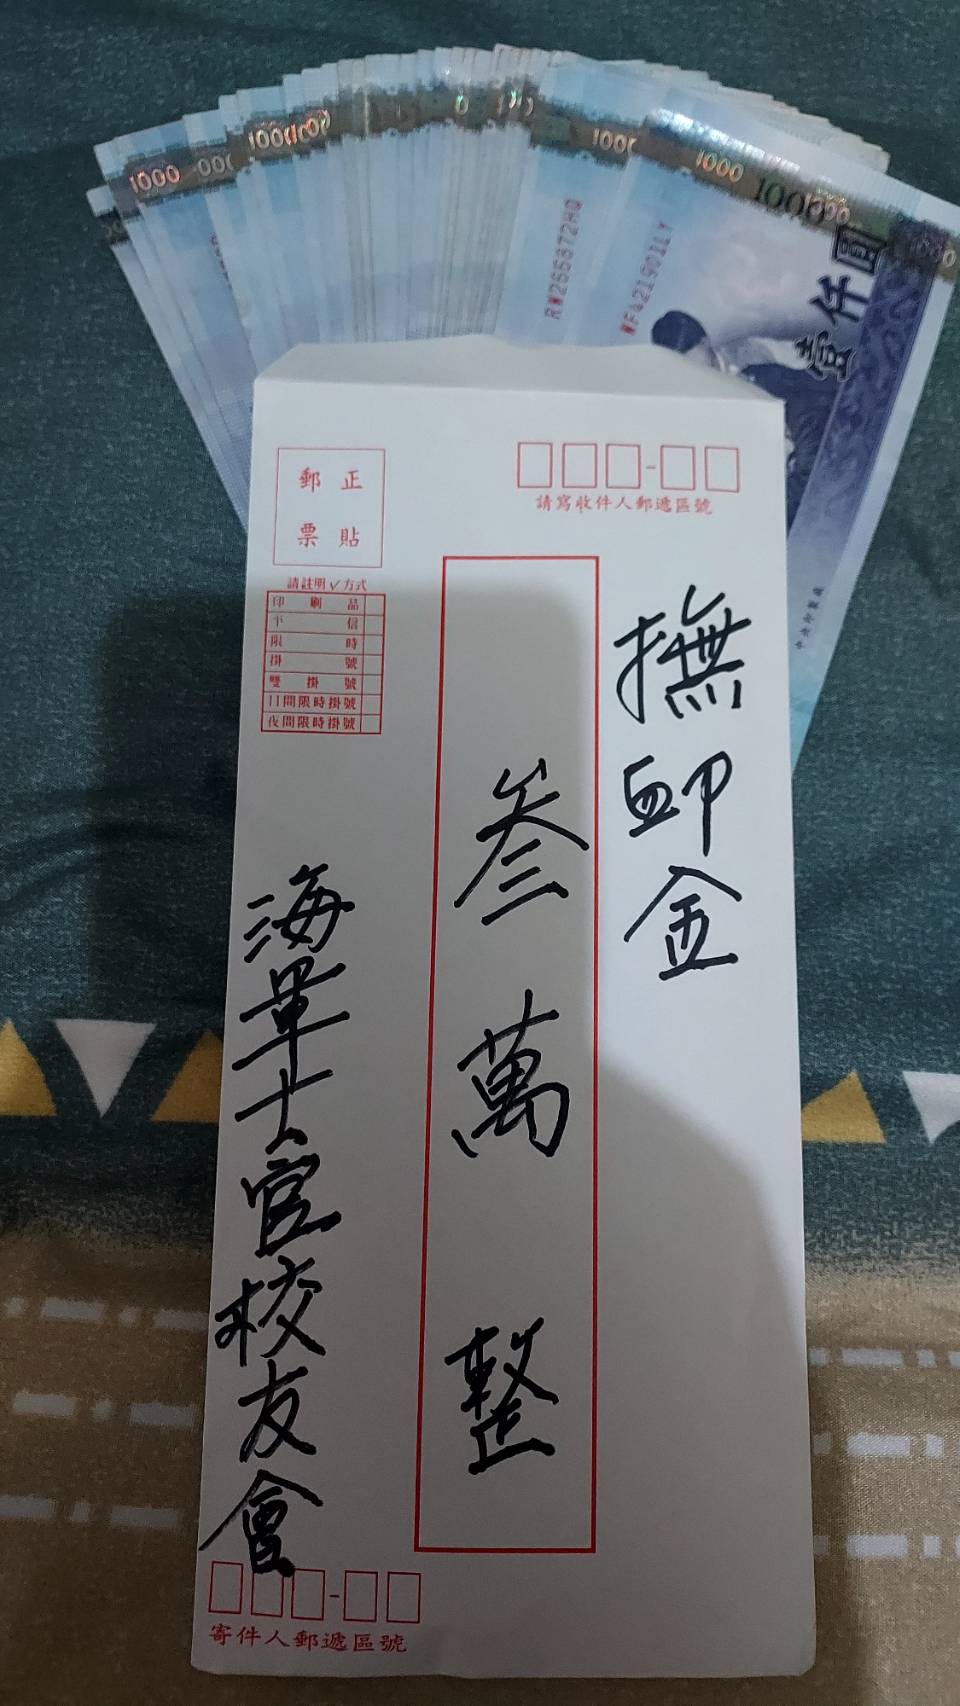 1000
1000
1000
1000
1000
1000
1000
壹仟圓
RW266372HQ
中央印製廠
正貼
郵票
請寫收件人郵遞區號
請註明✓方式
印刷品
平信
限時
掛號
雙掛號
日間限時掛號
夜間限時掛號
撫卹金
叁萬整
海軍士官校友會
寄件人郵遞區號